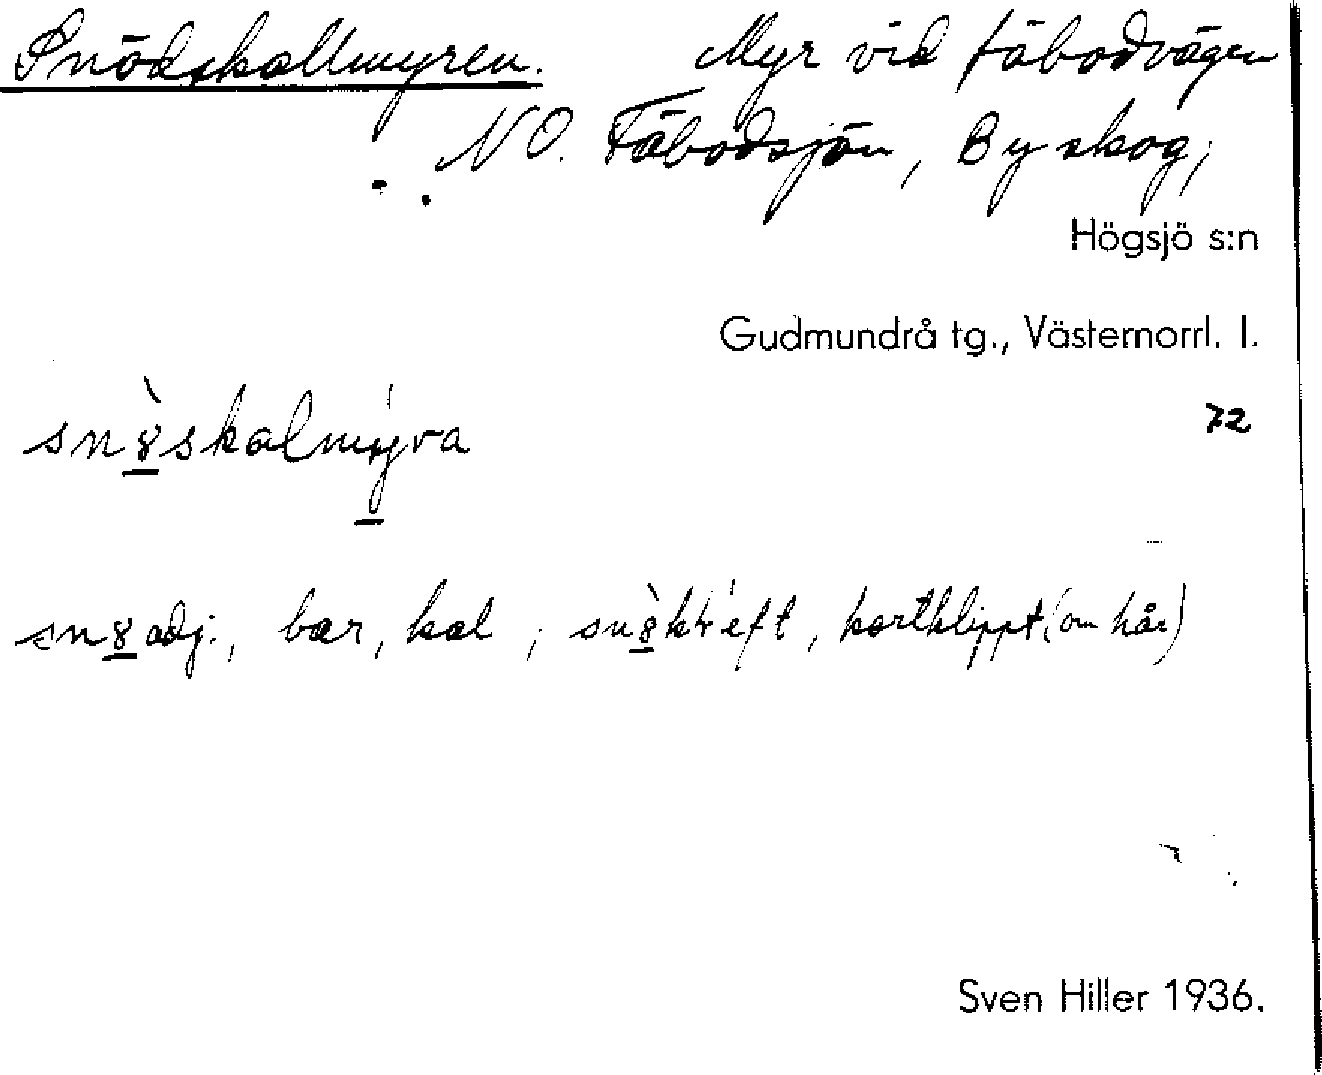 Snödskallmyren. Myr vid fäbodvägen
NO. Fäbodsjön, By skog;
Högsjö s:n
Gudmundrå tg., Västernorrl. l.
72
sn8̀skalmýra
sn8 adj., bar, kal; sn8̀kʟ́eft, kortklippt (om hår)
Sven Hiller 1936.